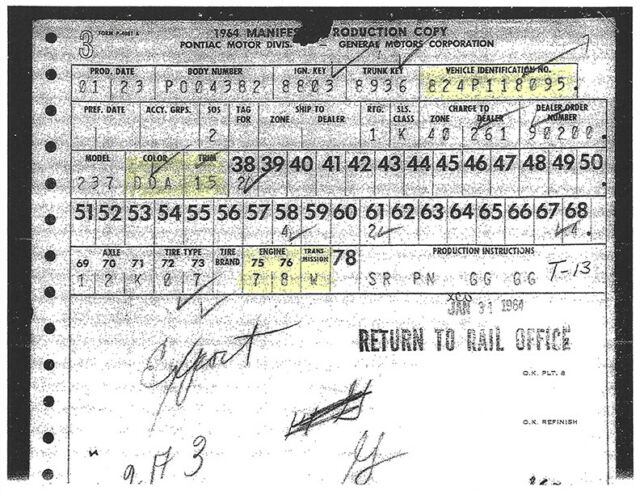 3 FORM P-4081 A 1964 MANIFES PRODUCTION COPY
PONTIAC MOTOR DIVIS. GENERAL MOTORS CORPORATION
PROD. DATE BODY NUMBER IGN. KEY TRUNK KEY VEHICLE IDENTIFICATION NO.
01 23 PO04382 8803 8936 824P118095.
PREF. DATE ACCY. GRPS. SOS TAG FOR SHIP TO ZONE DEALER RTG. SLS. CLASS CHARGE TO ZONE DEALER DEALER ORDER NUMBER
2 1 K 40 261 90200.
MODEL COLOR TRIM 38 39 40 41 42 43 44 45 46 47 48 49 50
237 DDA 15 2
51 52 53 54 55 56 57 58 59 60 61 62 63 64 65 66 67 68
4 2 4
AXLE TIRE TYPE TIRE BRAND ENGINE TRANSMISSION 78 PRODUCTION INSTRUCTIONS
69 70 71 72 73 75 76
1 2 K 0 7 7 8 W SR PN GG GG T-13
JAN 31 1964
RETURN TO RAIL OFFICE
Export
O.K. PLT. 8
O.K. REFINISH